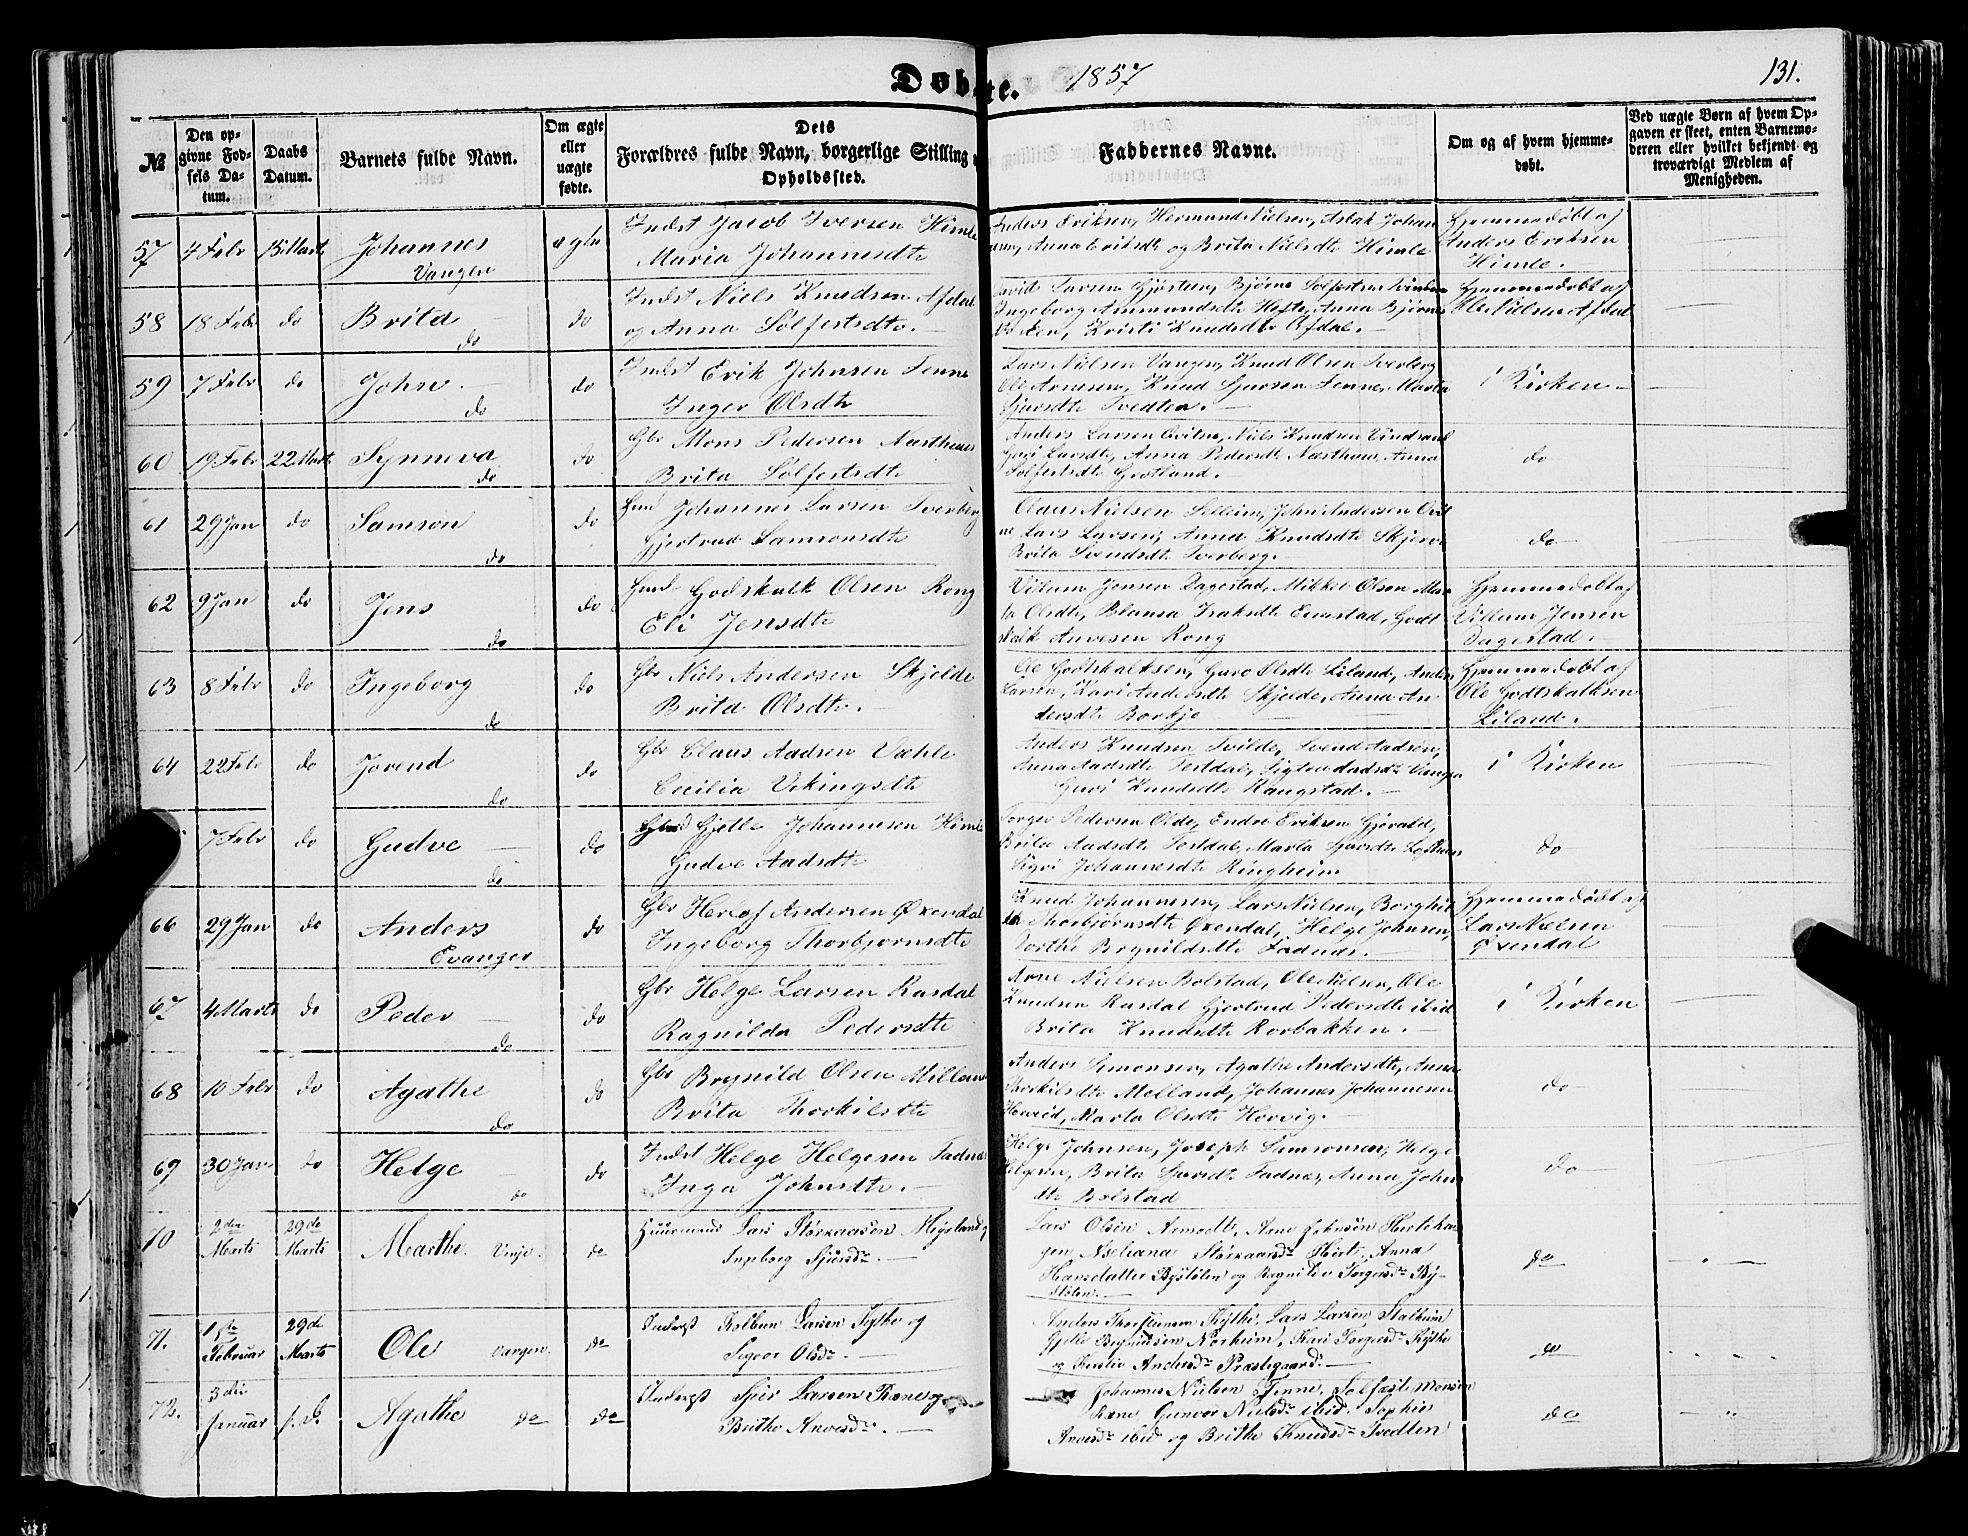 Døbte. 1857
131.
No
Den opgivne Fødsels Datum.
Daabs Datum.
Barnets fulde Navn.
Om ægte eller uægte fødte.
Dets Forældres fulde Navn, borgerlige Stilling
Opholdssted.
Faddernes Navne.
Om og af hvem hjemmedøbt.
Ved uægte Børn af hvem Opgaven er skeet, enten Barnemoderen eller hvilket bekjendt og troværdigt Medlem af Menigheden.
57 4 Febr 15 Marts Johannes Vangen ægte
Indst Jacob Iversen Himle
Maria Johannesdtr
Anders Eriksen, Hermund Nielsen, Aslak Johan
Anna Eriksdtr og Brita Nielsdtr Himle
Hjemmedøbt af
Anders Eriksen
Himle.
58 18 Febr do Brita do do
Indst Niels Knudsen Afdal
og Anna Sølfestsdtr.
David Larsen Gjøsten, Bjørne Sølfestsen
Ingeborg Ammundsdtr Hefte, Anna Bjørns
Kristi Knudsdtr Afdal.
Hjemmedøbt af
Ole Nielsen Afdal
59 7 Febr do John do do
Indst Erik Johnsen Tenne
Inger Olsdtr
Lars Nielsen Vangen, Knud Olsen Tverberg
Ole Arnesen, Knud Sjursen Tenne, Marta
Sjursdtr Tvedten.
i Kirken
60 19 Febr 22 Marts Synneva do do
Gbr Mons Pedersen Næsthuus
Brita Sølfestsdtr
Anders Larsen Qvitne, Niels Knudsen Vindsand
Guri Larsdtr, Anna Pedersdtr Næsthuus, Anna
Sølfestsdtr Grotland.
do
61 29 Jan do Samson do do
Hmd Johannes Larsen Tverberg
Gjertrud Samsonsdtr
Claus Nielsen Selheim, John Andersen Qvit
ne Lars Larsen, Anna Knudsdtr Skjerve
Brita Svendsdtr Tverberg.
do
62 9 Jan do Jens do do
Hmd Godskalk Olsen Rong
Eli Jensdtr
Villum Jensen Dagestad, Mikkel Olsen Mar
ta Olsdtr, Blansa Isaksdtr Emstad, Godt
skalk Anvesen Rong
Hjemmedøbt af
Villum Jensen
Dagestad.
63 8 Febr do Ingeborg do do
Gbr Niels Andersen Skjelde
Brita Olsdtr.
Ole Godtskalksen, Guro Olsdtr Liland, Anders
Larsen, Kari Andersdtr Skjelde, Anna An
dersdtr Borkje
Hjemmedøbt af
Ole Godtskalksen
Liland.
64 22 Febr do Jorend do do
Gbr Claus Aadsen Væhle
Cecilia Vikingsdtr
Anders Knudsen Tvilde, Svend Aadsen,
Anna Aadsdtr Festdal, Sigtru Aadsdtr Vangen
Guri Knudsdtr Rangstad.
i Kirken
7 Febr do Gudve do do
Gjelle Johannesen Himle
Gudve Aadsdtr
Torger Pedersen Olde, Endre Eriksen Gjerald,
Brita Aadsdtr Festdal, Marta Sjursdtr Lofthuus
Sigvi Johannesdtr Ringheim
do
66 29 Jan do Anders Evanger do
Gbr Herlof Andersen Øxendal
Ingeborg Thorbjørnsdtr
Knud Johannesen, Lars Nielsen, Borghil
da Thorbjørnsdtr Øxendal, Helge Johnsen,
Dorthe Brynildsdtr Fadnæs.
Hjemmedøbt af
Lars Nielsen
Øxendal
67 4 Marts do Peder do do
Gbr Helge Larsen Rasdal
Ragnilda Pedersdtr
Arne Nielsen Bolstad, Ole Nielsen, Ole
Knudsen Rasdal Gjertrud Pedersdtr ibid
Brita Knudsdtr Rorbakken.
i Kirken
68 10 Febr do Agathe do do
Gbr Brynild Olsen Milland
Brita Thorkilsdtr
Anders Simonsen, Agathe Andersdtr, Anna
Thorkilsdtr Melland, Johannes Johannesen
Marta Olsdtr Horvig.
do
69 30 Jan do Helge do do
Indst Helge Helgesen Fadnes
Inga Johnsdtr.
Helge Johnsen, Joseph Samsonsen, Helge
Helgesen, Brita Sjursdtr Fadnes, Anna Johns
dtr Bolstad
do
70 2den Marts 29de Marts Marthe. Vinje. do
Huusmand Lars Størkaasen Mysland og
Ingeborg Sjursdr.
Lars Olsen Arne Johnsen
Størkaasdr Anna
Hansdatter Bystølen og Ragnilda Torgersdr By-
stølen.
do
71. 1ste Februar 29de Marts Ole Vangen. do
Inderst Kolbein Larsen Kythe og
Sigvor Olsdr.
Anders Thorstensen Kythe, Lars Larsen Stalheim
Gjelle Brynildsen Norheim, Kari Torgersdr Kythe
og Kirstie Andersdr Præstegaard.
do
72. 3die Januar s. d. Agathe do do
Inderst Sjur Larsen Rene og
Brithe Anvesdr.
Johannes Nielsen Tenne, Sølfest Monsen
Rene Gunvor Nielsdr ibid. Sophie
Anvesdr ibid og Brithe Knudsdr Tvedten
do